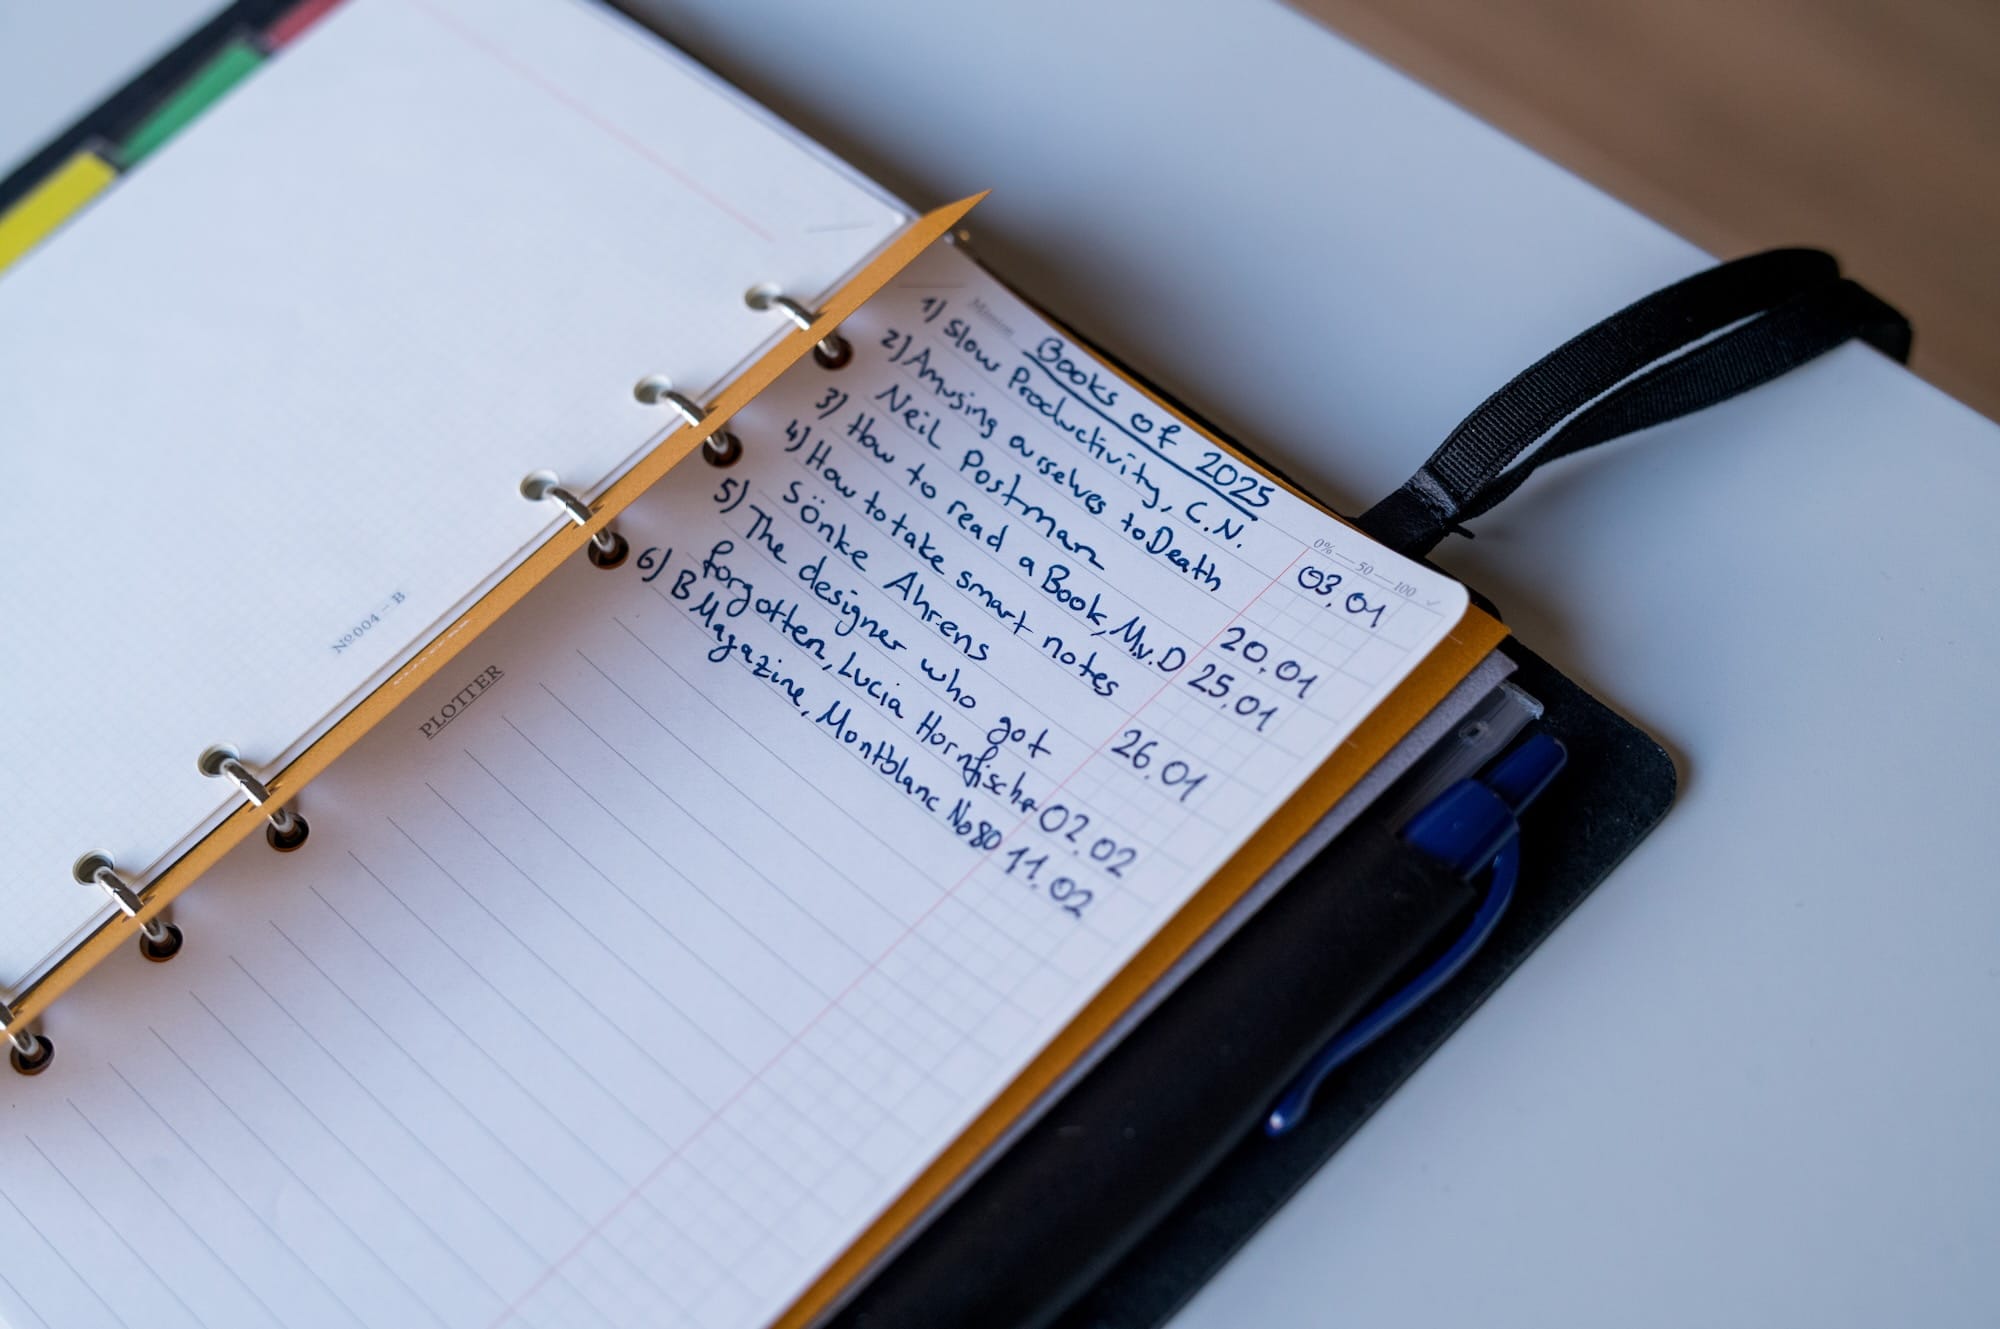 Nº004-B
PLOTTER
Books of 2025
0%—50—100
1) Slow Productivity, C.N. 03.01
2) Amusing ourselves to Death
Neil Postman 20.01
3) How to read a Book, M.v.D 25.01
4) How to take smart notes
Sönke Ahrens 26.01
5) The designer who got
forgotten, Lucia Hornfischer 02.02
6) B Magazine, Montblanc No80 11.02